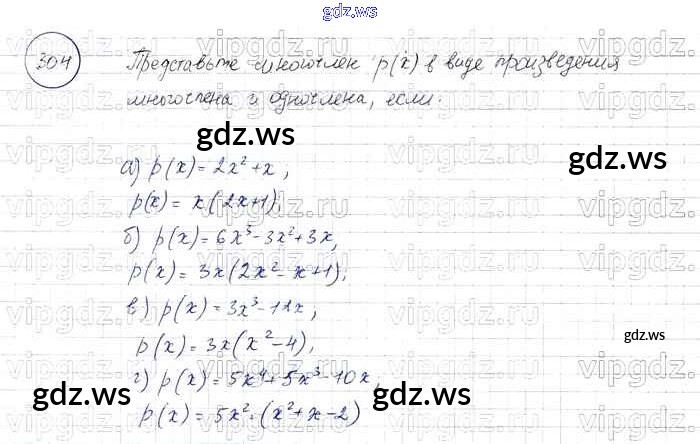 gdz.ws
304 Представьте многочлен p(x) в виде произведения
многочлена и одночлена, если:
gdz.ws
gdz.ws
а) p(x) = 2x² + x;
p(x) = x(2x+1);
б) p(x) = 6x³ - 3x² + 3x,
p(x) = 3x(2x² - x + 1);
в) p(x) = 3x³ - 12x;
gdz.ws
p(x) = 3x(x² - 4);
г) p(x) = 5x⁴ + 5x³ - 10x,
gdz.ws
gdz.ws
p(x) = 5x² · (x² + x - 2)